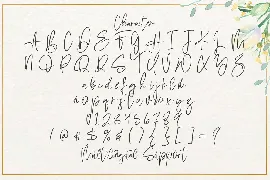 Character
A B C D E F G H I J K L M
N O P Q R S T U V W X Y Z
a b c d e f g h i j k l m
n o p q r s t u v w x y z
0 1 2 3 4 5 6 7 8 9
! @ # $ % & ( ) { } [ ] = ?
Multilingual Support